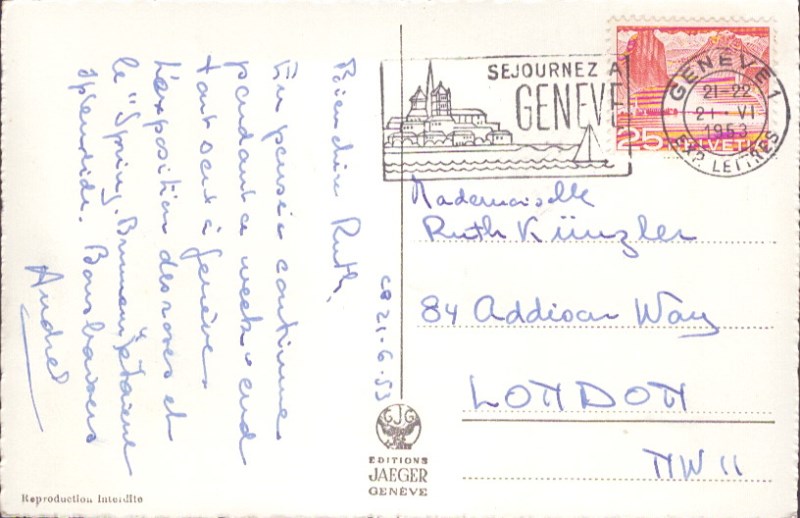 Bien chère Ruth,
En pensée continue
pendant ce week-end
tout seul à Genève.
L'exposition des roses et
le "Spring. Brunnen" étaient
splendide. Bons baisers
André
ce 21-6-53
SEJOURNEZ A
GENEVE
GENÈVE 1
21-22
21 VI
1953
EXP. LETTRES
25 HELVETIA
Mademoiselle
Ruth Künzler
84 Addison Way
LONDON
NW 11
GJG
EDITIONS
JAEGER
GENÈVE
Reproduction Interdite